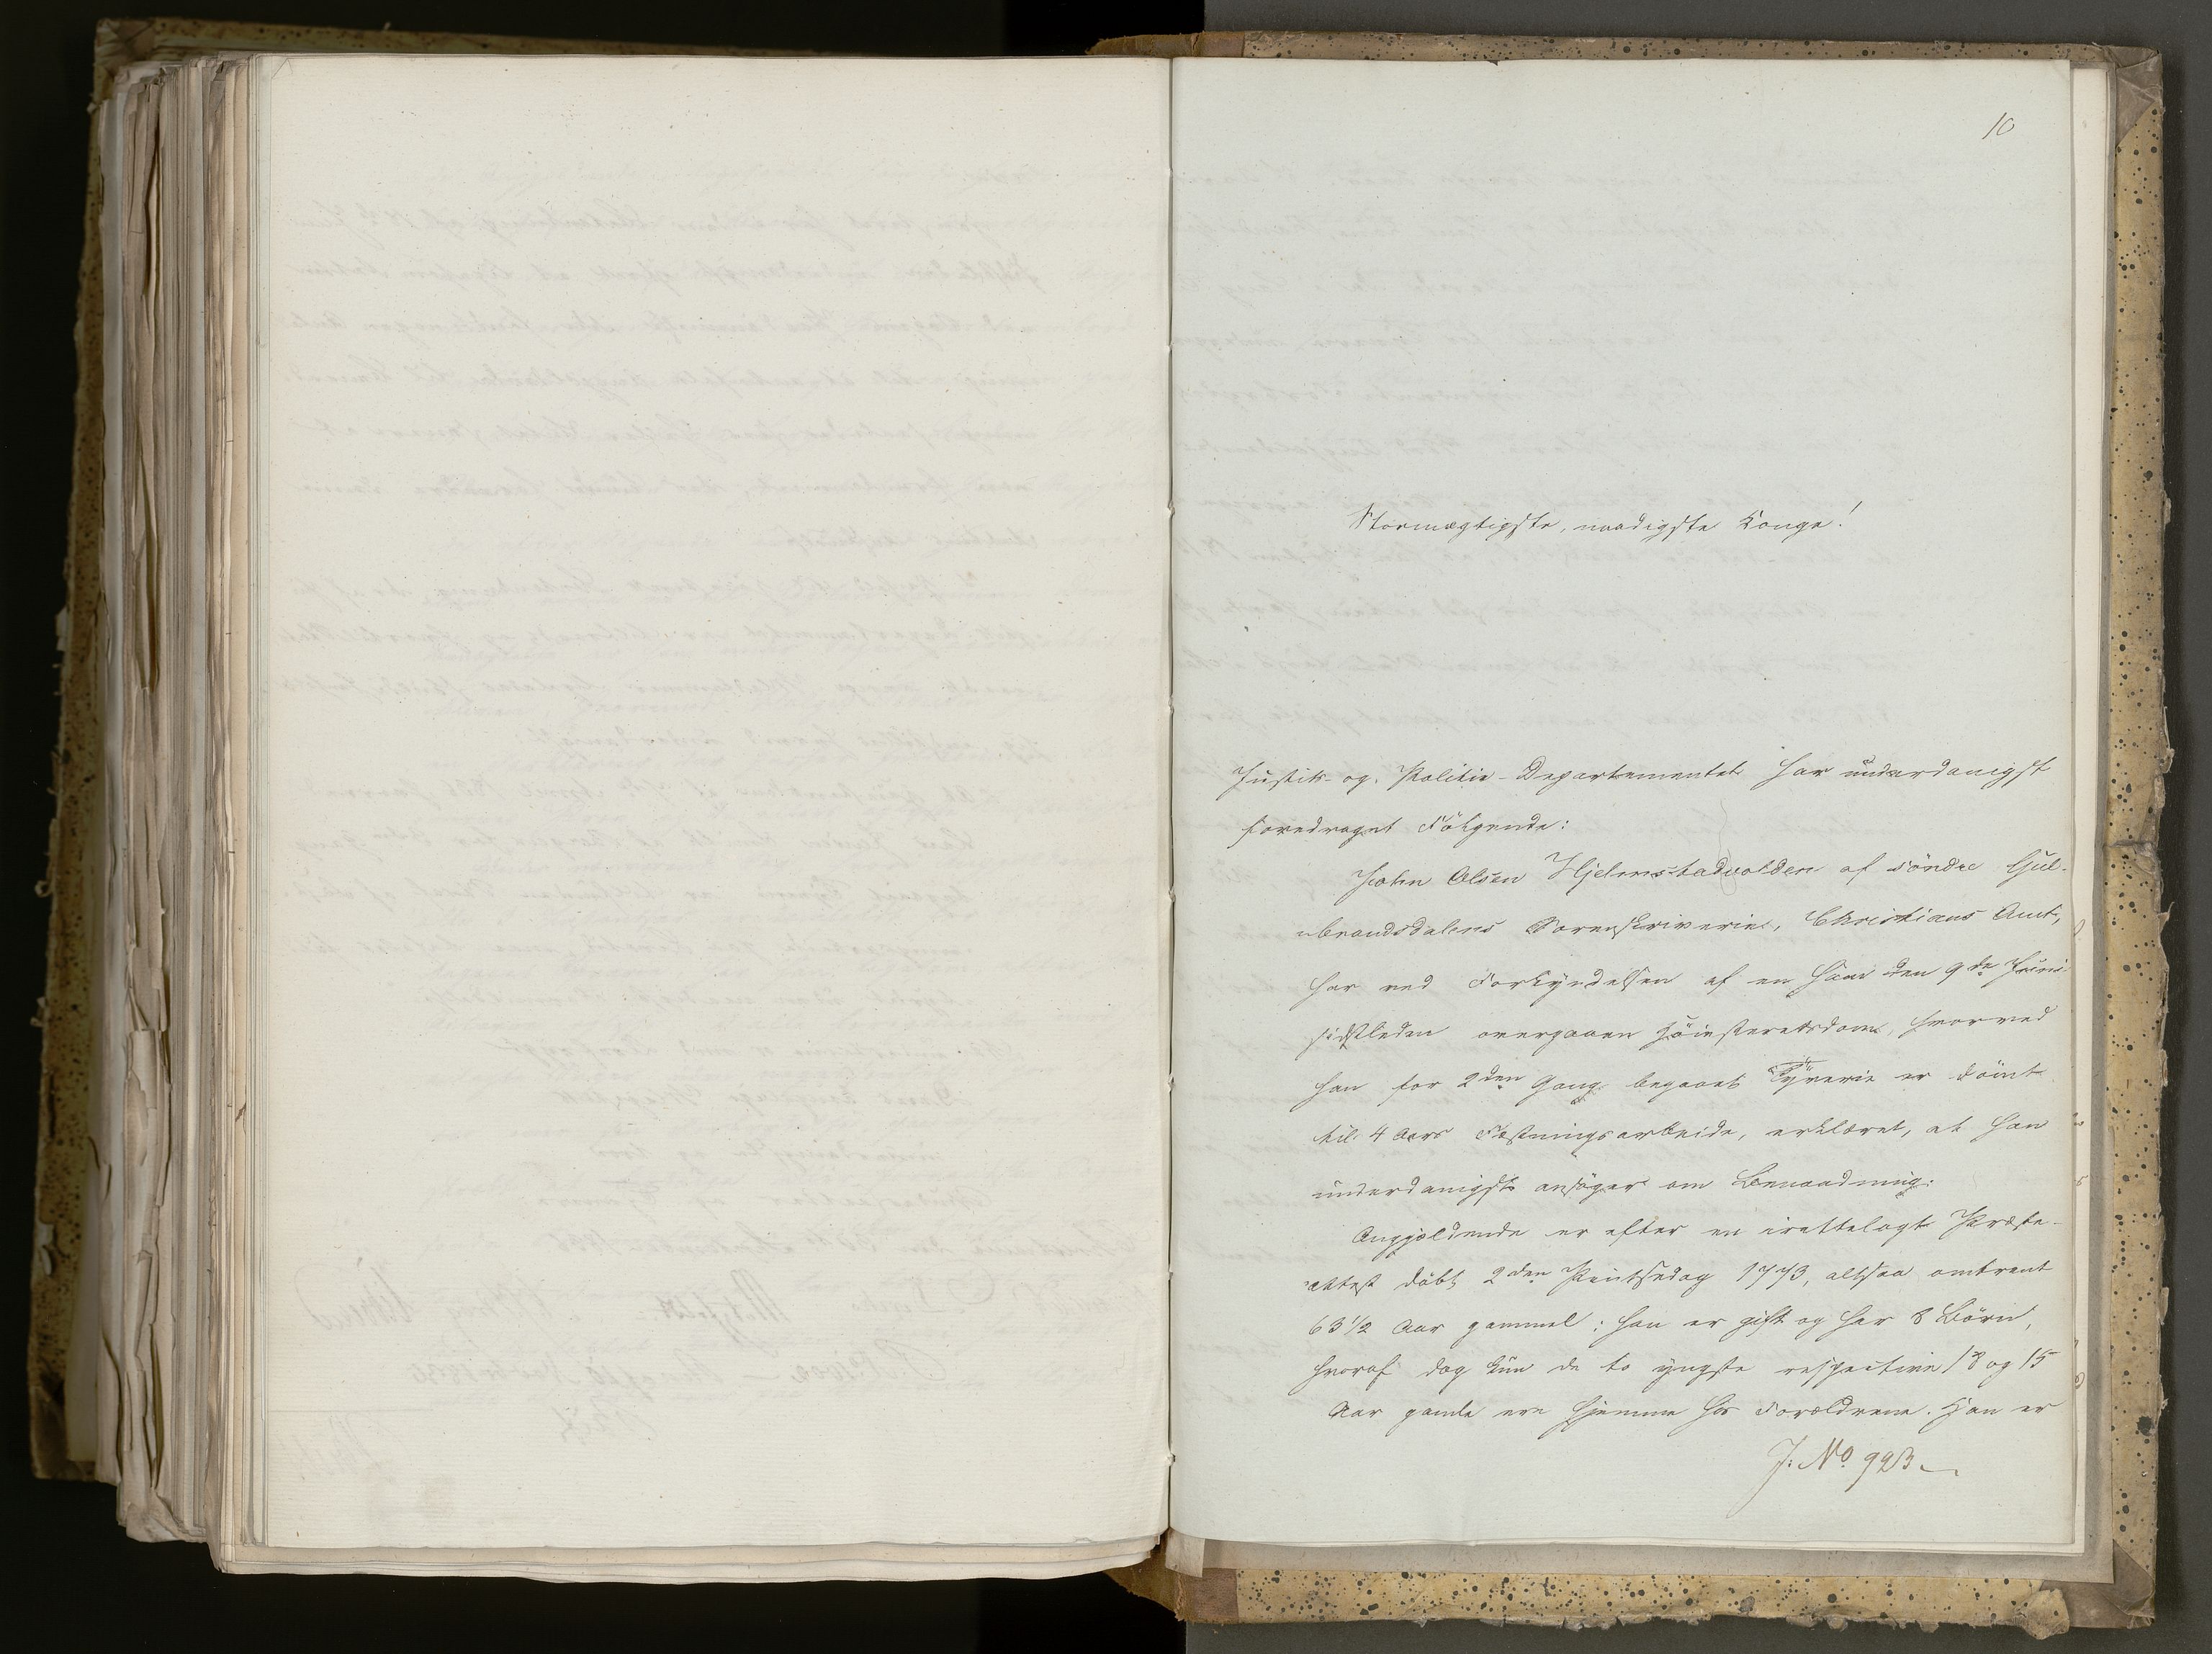 10
Stormægtigste, naadigste Konge!
Justits- og Politie-Departementet har underdanigst
foredraget Følgende:
John Olsen Hjelmstadvolden af søndre Gul-
brandsdalens Sorenskriverie, Christians Amt,
har ved Forkyndelsen af en ham den 9de Juni
sidstleden overgaaen Høiesteretsdom, hvorved
han for 2den Gang begaaet Tyverie er dømt
til 4 Aars Fæstningsarbeide, erklæret, at han
underdanigst ansøger om Benaadning.
Angjældende er efter en irettelagt Præste-
attest døbt 2den Pintsedag 1773, altsaa omtrent
63 1/2 Aar gammel; han er gift og har 8 Børn,
hvoraf dog kun de to yngste respective 18 og 15
Aar gamle ere hjemme hos Forældrene. Han er
J. No 923